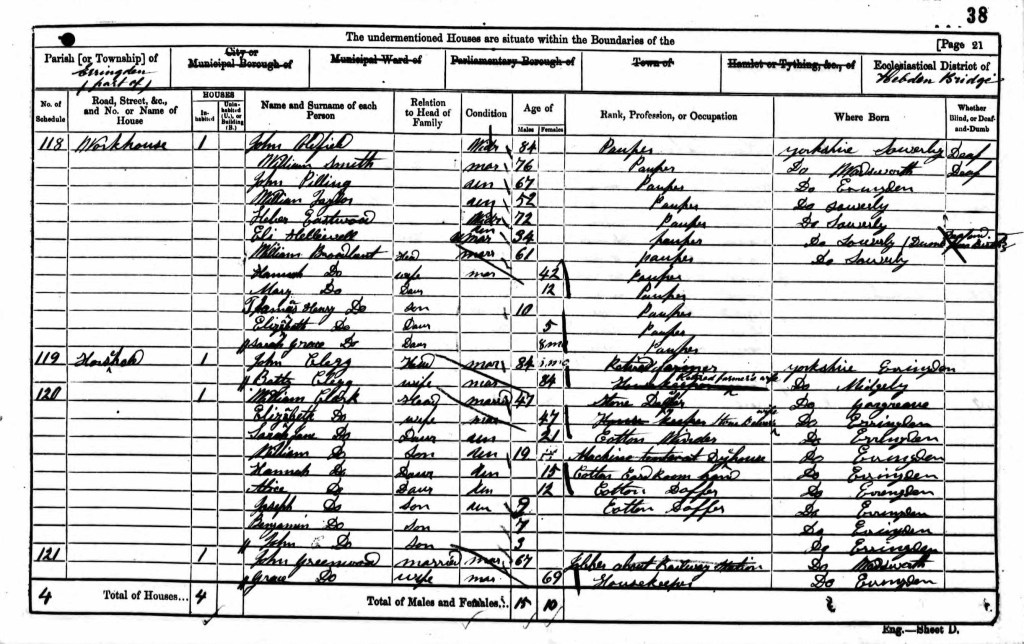 38
The undermentioned Houses are situate within the Boundaries of the
[Page 21
Parish [or Township] of City or Municipal Borough of Municipal Ward of Parliamentary Borough of Town of Hamlet or Tything, &c., of Ecclesiastical District of
Erringden (part of) Hebden Bridge
No. of Schedule Road, Street, &c., and No. or Name of House HOUSES Inhabited Uninhabited (U.), or Building (B.) Name and Surname of each Person Relation to Head of Family Condition Age of Males Females Rank, Profession, or Occupation Where Born Whether Blind, or Deaf-and-Dumb
118 Workhouse 1 John Widr 84 Pauper Yorkshire Sowerby Deaf
William Smith mar 76 Pauper Do Wadsworth Deaf
John Pilling 67 Pauper Do Erringden
William Taylor 52 Pauper Do Sowerby
Heber Eastwood Widr 72 Pauper Do Sowerby
Eli Helliwell 34 pauper Do Sowerby (Dumb
William Head marr 61 pauper Do Sowerby
Hannah Do wife mar 42 Pauper
Mary Do Daur 12 Pauper
James Henry Do son 10 Pauper
Elizabeth Do Daur 5 Pauper
Sarah Grace Do Daur 8 mo Pauper
119 1 John Clegg Head mar 84 Retired farmer Yorkshire Erringden
Betty Clegg wife mar 84 Retired farmer's wife Do Midgely
120 1 William Clark Head marrd 47 Stone Do Gargreave
Elizabeth Do wife mar 47 House Keeper Stone wife Do Erringden
Sarah Jane Do Daur 21 Cotton Winder Do Erringden
William Do son 19 Machine Do Erringden
Hannah Do Daur 15 Cotton Card Room hand Do Erringden
Alice Do Daur 12 Cotton Doffer Do Erringden
Joseph Do son 9 Cotton Doffer Do Erringden
Benjamin Do son 7 Do Erringden
John Do son 3 Do Erringden
121 1 John Greenwood married mar 67 Jobber about Railway Station Do Wadsworth
Grace Do wife mar 69 Housekeeper Do Erringden
4 Total of Houses... 4 Total of Males and Females... 15 10
Eng.—Sheet D.